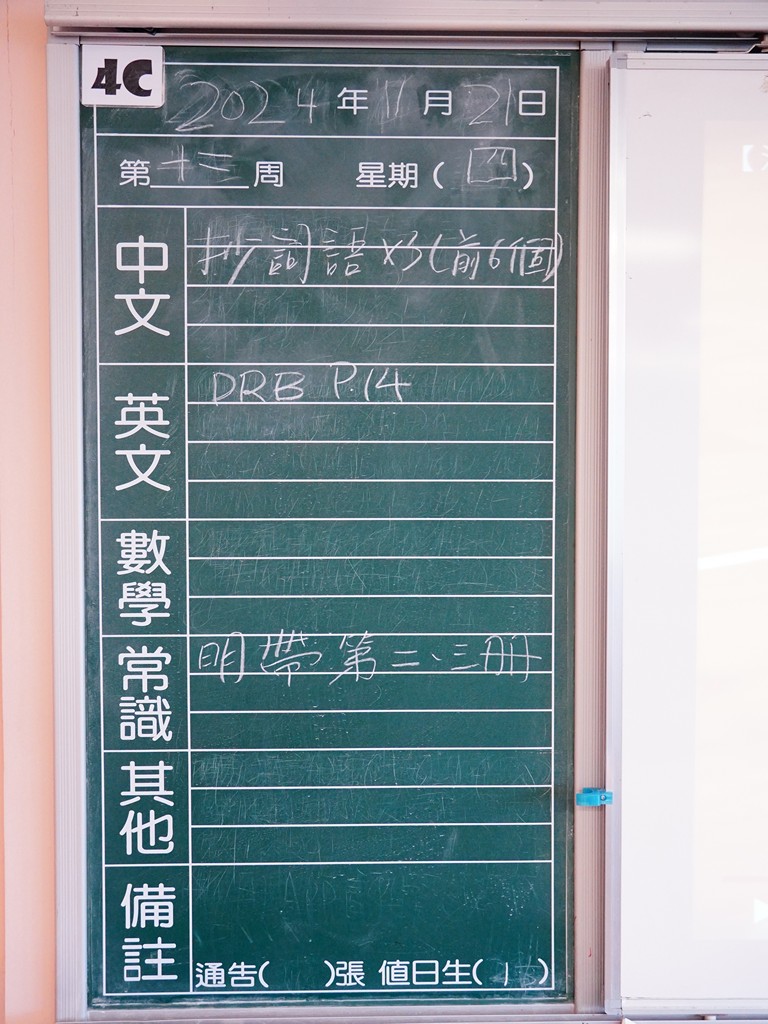 4C
2024年11月21日
第十三周 星期(四)
中文 抄詞語x3(前6個)
英文 DRB P.14
數學
常識 明帶第二、三冊
其他
備註
通告( )張 值日生( )